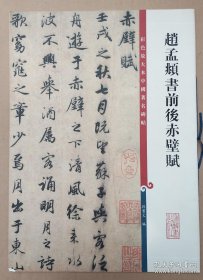 彩色放大本中國著名碑帖
趙孟頫書前後赤壁賦
赤壁賦
壬戌之秋七月既望蘇子與客泛
舟遊于赤壁之下清風徐来水
波不興舉酒屬客誦明月之詩
歌窈窕之章少焉月出于東山